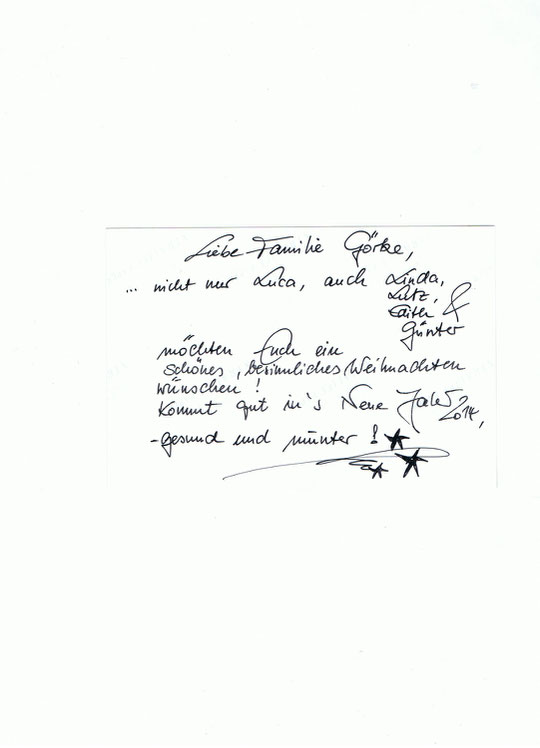 Liebe Familie Görke,
... nicht nur Luca, auch Linda,
Lutz,
Edith &
Günter
möchten Euch ein
schönes, besinnliches Weihnachten
wünschen!
Kommt gut in's Neue Jahr 2014,
-gesund und munter!